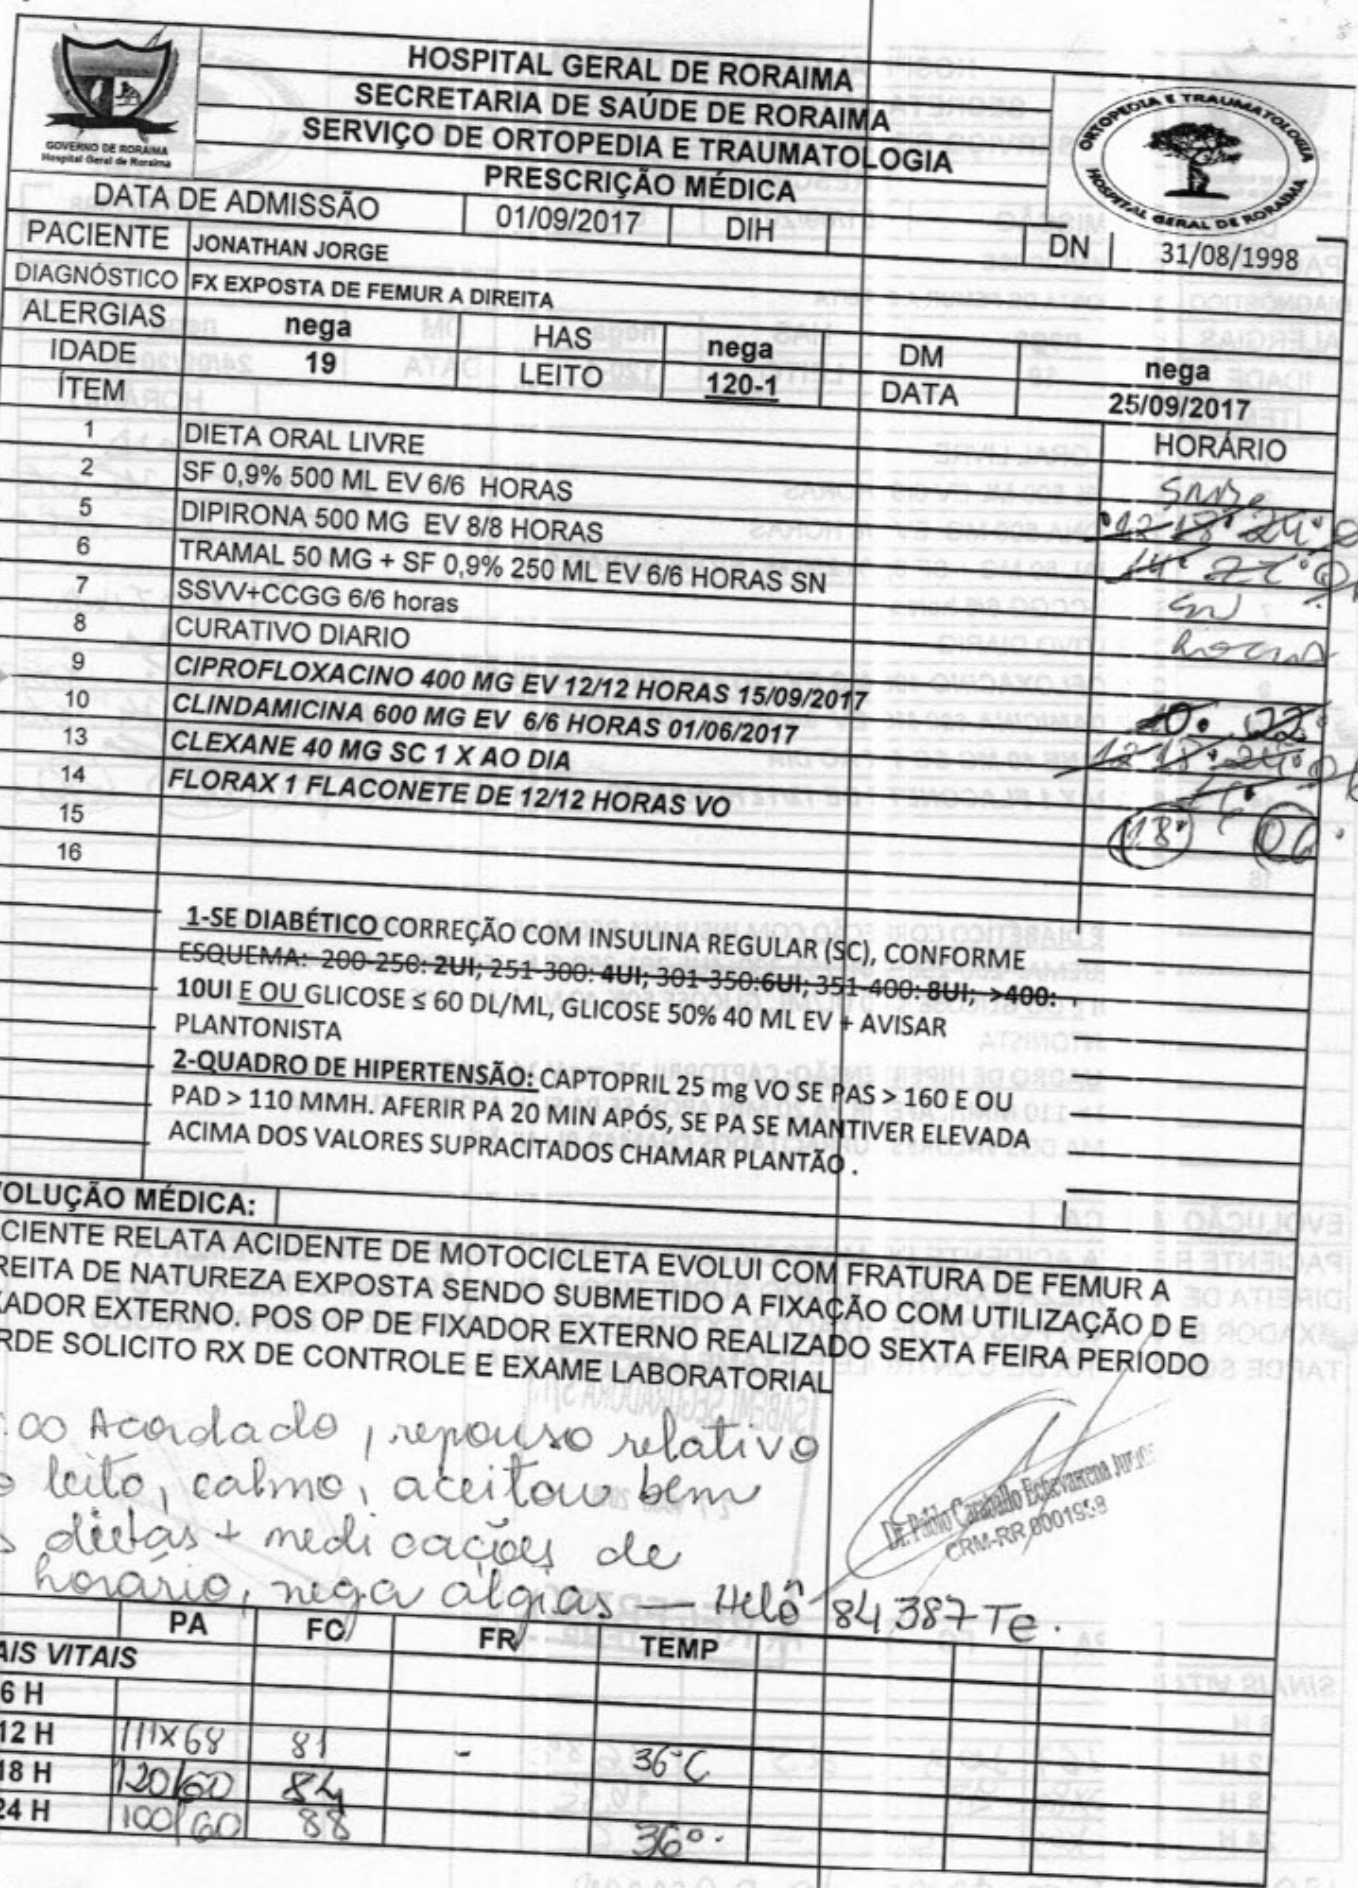 HOSPITAL GERAL DE RORAIMA
SECRETARIA DE SAÚDE DE RORAIMA
SERVIÇO DE ORTOPEDIA E TRAUMATOLOGIA
PRESCRIÇÃO MÉDICA
GOVERNO DE RORAIMA
Hospital Geral de Roraima
ORTOPEDIA E TRAUMATOLOGIA
HOSPITAL GERAL DE RORAIMA
DATA DE ADMISSÃO 01/09/2017 DIH DN 31/08/1998
PACIENTE JONATHAN JORGE
DIAGNÓSTICO FX EXPOSTA DE FEMUR A DIREITA
ALERGIAS nega HAS nega DM nega
IDADE 19 LEITO 120-1 DATA 25/09/2017
ÍTEM HORÁRIO
1 DIETA ORAL LIVRE
2 SF 0,9% 500 ML EV 6/6 HORAS 12 18 24
5 DIPIRONA 500 MG EV 8/8 HORAS 14 22
6 TRAMAL 50 MG + SF 0,9% 250 ML EV 6/6 HORAS SN SN
7 SSVV+CCGG 6/6 horas
8 CURATIVO DIARIO
9 CIPROFLOXACINO 400 MG EV 12/12 HORAS 15/09/2017 22
10 CLINDAMICINA 600 MG EV 6/6 HORAS 01/06/2017 12 18 24
13 CLEXANE 40 MG SC 1 X AO DIA
14 FLORAX 1 FLACONETE DE 12/12 HORAS VO 18 06
15
16
1-SE DIABÉTICO CORREÇÃO COM INSULINA REGULAR (SC), CONFORME
ESQUEMA: 200-250: 2UI; 251-300: 4UI; 301-350:6UI; 351-400: 8UI; >400:
10UI E OU GLICOSE ≤ 60 DL/ML, GLICOSE 50% 40 ML EV + AVISAR
PLANTONISTA
2-QUADRO DE HIPERTENSÃO: CAPTOPRIL 25 mg VO SE PAS > 160 E OU
PAD > 110 MMH. AFERIR PA 20 MIN APÓS, SE PA SE MANTIVER ELEVADA
ACIMA DOS VALORES SUPRACITADOS CHAMAR PLANTÃO .
VOLUÇÃO MÉDICA:
ACIENTE RELATA ACIDENTE DE MOTOCICLETA EVOLUI COM FRATURA DE FEMUR A
REITA DE NATUREZA EXPOSTA SENDO SUBMETIDO A FIXAÇÃO COM UTILIZAÇÃO D E
XADOR EXTERNO. POS OP DE FIXADOR EXTERNO REALIZADO SEXTA FEIRA PERÍODO
RDE SOLICITO RX DE CONTROLE E EXAME LABORATORIAL
Acordado, repouso relativo
leito, calmo, aceitou bem
dietas + medicações de
horário, nega algias — Helô 84387 Te.
Dr. Pablo Caraballo Echevarrena Junior
CRM-RR
PA FC FR TEMP
AIS VITAIS
6 H
12 H 111x68 81 - 36°C
18 H 120/60 84
24 H 100/60 88 36°